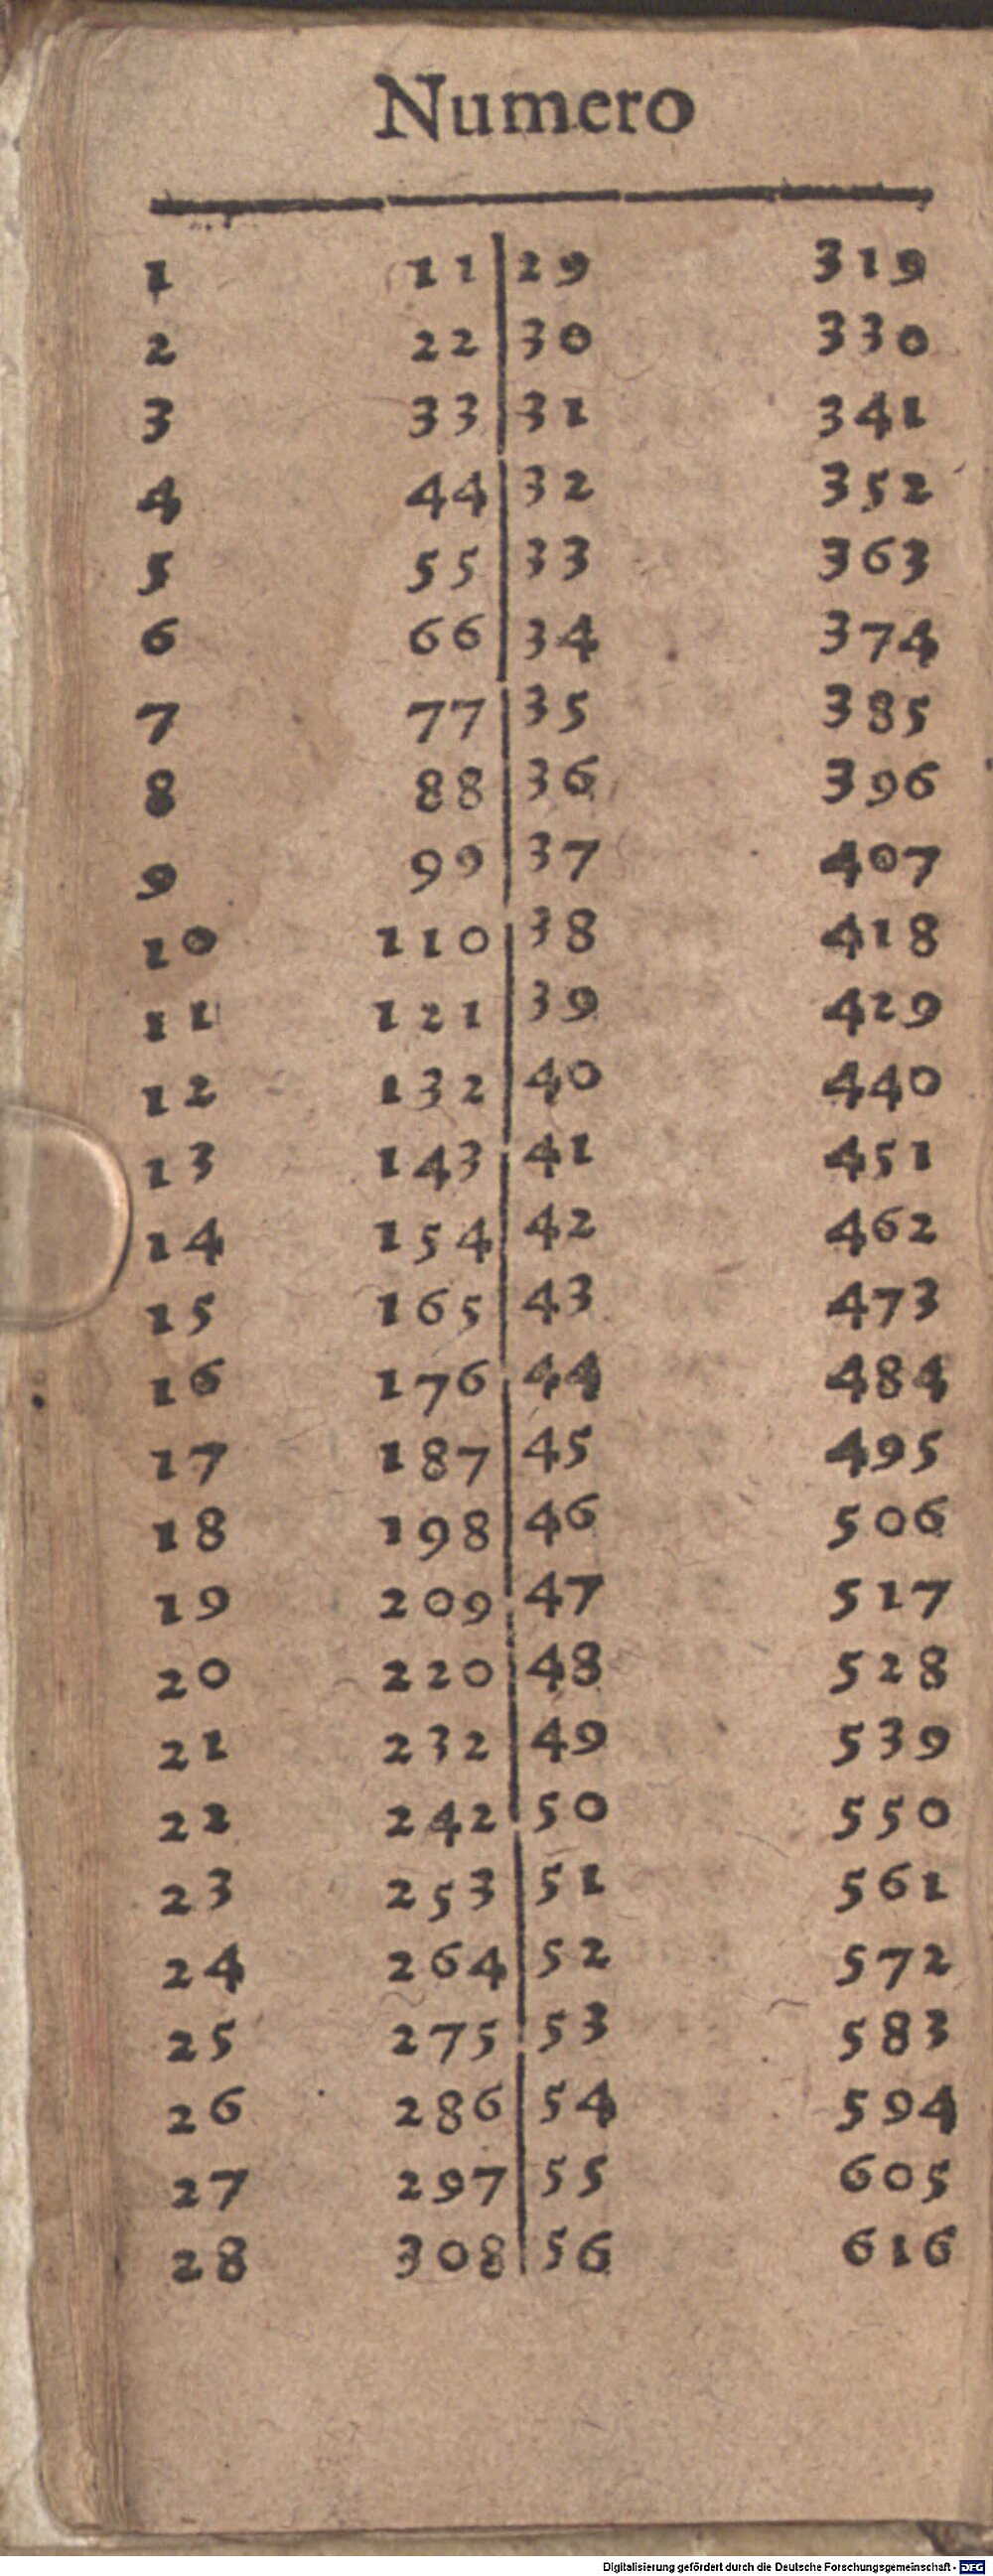 Numero
1 11 29 319
2 22 30 330
3 33 31 341
4 44 32 352
5 55 33 363
6 66 34 374
7 77 35 385
8 88 36 396
9 99 37 407
10 110 38 418
11 121 39 429
12 132 40 440
13 143 41 451
14 154 42 462
15 165 43 473
16 176 44 484
17 187 45 495
18 198 46 506
19 209 47 517
20 220 48 528
21 232 49 539
22 242 50 550
23 253 51 561
24 264 52 572
25 275 53 583
26 286 54 594
27 297 55 605
28 308 56 616
Digitalisierung gefördert durch die Deutsche Forschungsgemeinschaft - DFG